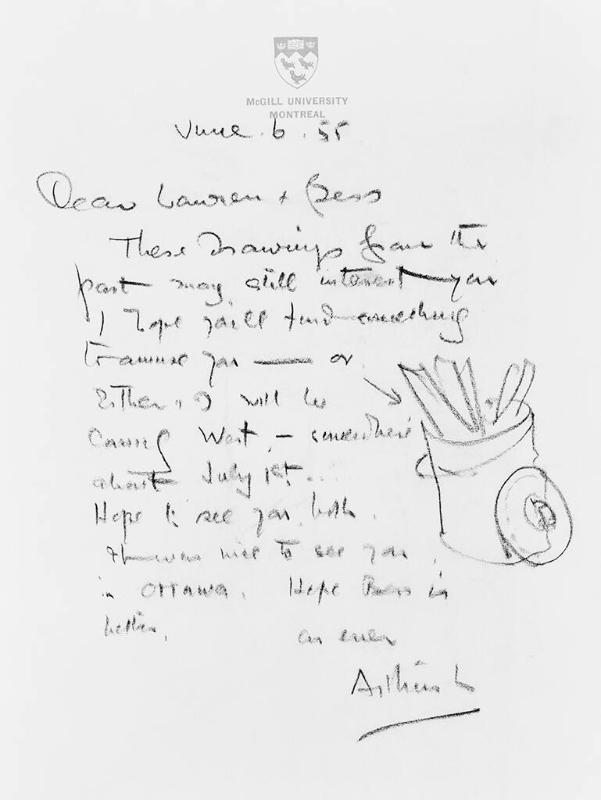 McGILL UNIVERSITY
MONTREAL
June . 6 . 55
Dear Lawren + Bess
These Drawings from the
past may still interest you
I hope you'll find something
to amuse you — or
Either, I will be
Coming West, – somewhere
about July 1st...
Hope to see you both .
It was nice to see you
in OTTAWA. Hope Bess is
better.
as ever
Arthur L